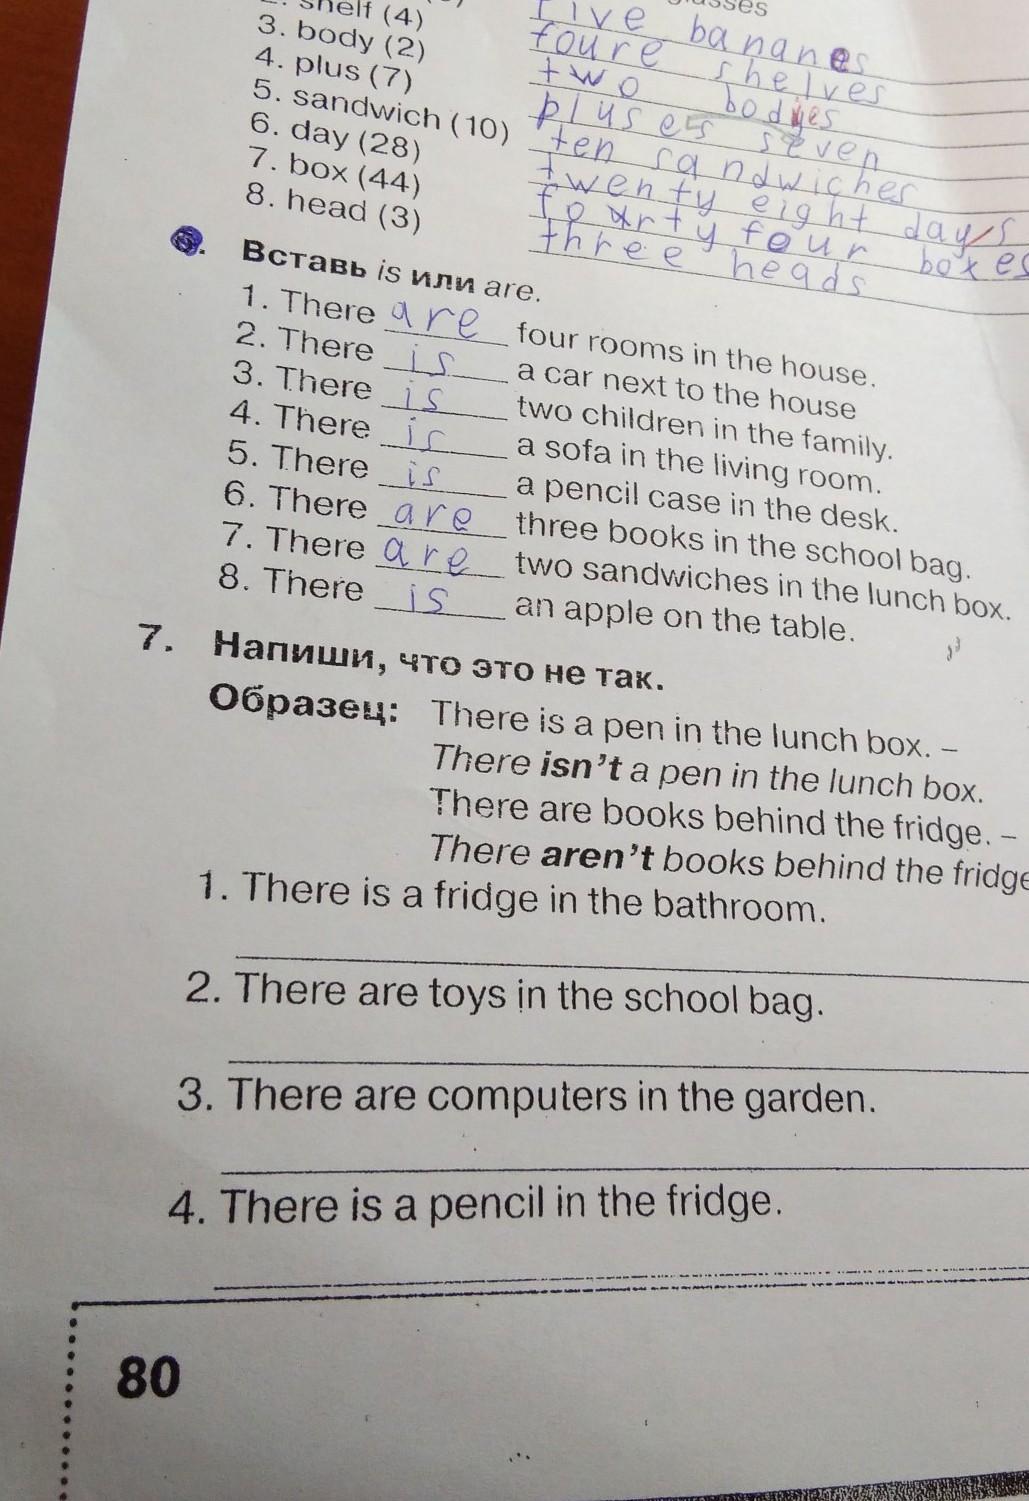 five bananes
shelf (4) foure shelves
3. body (2) two bodyies
4. plus (7) pluses seven
5. sandwich (10) ten sandwiches
6. day (28) twenty eight days
7. box (44) fourty four boxes
8. head (3) three heads
Вставь is или are.
1. There are four rooms in the house.
2. There is a car next to the house
3. There is two children in the family.
4. There is a sofa in the living room.
5. There is a pencil case in the desk.
6. There are three books in the school bag.
7. There are two sandwiches in the lunch box.
8. There is an apple on the table.
7. Напиши, что это не так.
Образец: There is a pen in the lunch box. –
There isn't a pen in the lunch box.
There are books behind the fridge. –
There aren't books behind the fridge
1. There is a fridge in the bathroom.
2. There are toys in the school bag.
3. There are computers in the garden.
4. There is a pencil in the fridge.
80